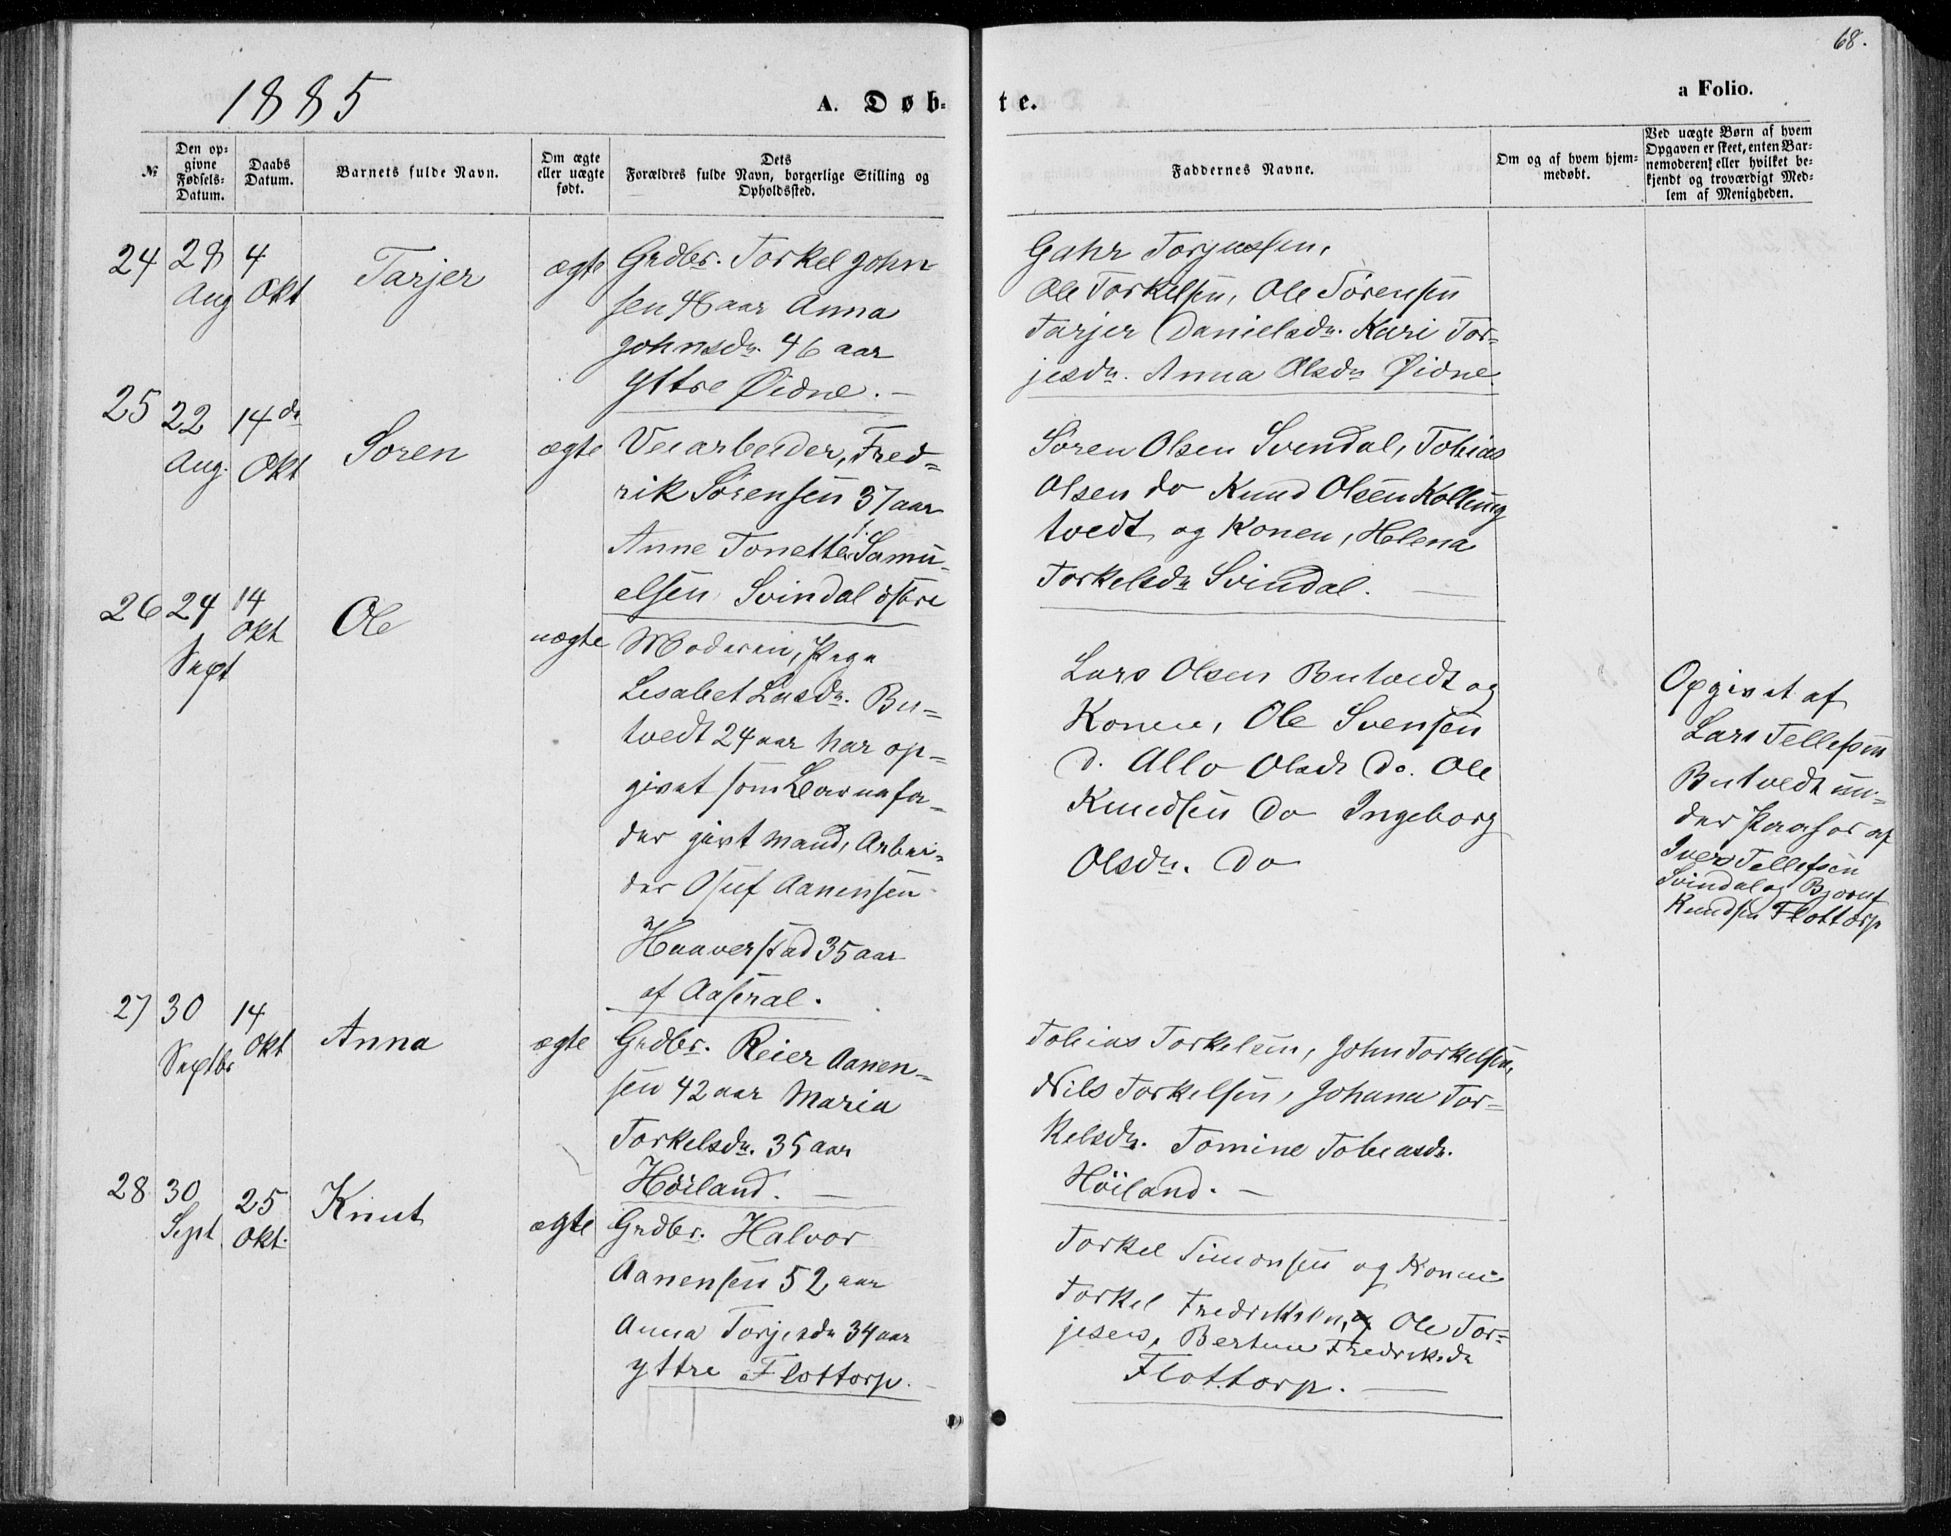 68.
1885
A. Døbte.
a Folio.
№
Den op-
givne
Fødsels-
Datum.
Daabs
Datum.
Barnets fulde Navn.
Om ægte
eller uægte
født.
Dets
Forældres fulde Navn, borgerlige Stilling og
Opholdssted.
Faddernes Navne.
Om og af hvem hjem-
medøbt.
Ved uægte Børn af hvem
Opgaven er skeet, enten Bar-
nemoderen eller hvilket be-
kjendt og troværdigt Med-
lem af Menigheden.
24
28
Aug
4
Okt
Tarjer
ægte
Grdbr. Torkel John
sen 46 aar Anna
Johnsdr. 46 aar
Yttre Øidne. -
Gahr Torjussen,
Ole Torkelsen, Ole Sørensen
Tarjer Danielsdr. Kari Tor-
jesdr. Anna Olsdr Øidne.
25
22
Aug.
14 de
Okt
Soren
ægte
Veiarbeider, Fred-
rik Sørensen 37 aar
Anne Tonette Samu-
elsen Svindal østre
Søren Olsen Svendal, Tobias
Olsen do Knud Olsen Kolleng
tvedt og Konen, Helena
Torkelsdr Svindal. -
26
24
Sept
14
Okt
Ole
uægte
Moderen, Pige
Lisabet Lasdr. Bu-
tvedt 24 aar har op-
givet som Barnefa-
der givt Mand, Arbei-
der Osuf Aanensen
Haaverstad 35 aar
af Aaseral.
Lars Olsen Butvedt og
Konen, Ole Svensen
d. Allo Olsdr do. Ole
Knudsen do Ingeborg
Olsdr. do
Opgivet af
Lars Tellefsen
Butvedt un-
der Paahør af
Iver Tellefsen
Svindal og
Knudsen Flottorp
27
30
Septbr
14
Okt
Anna
ægte
Grdbr. Reier Aanen-
sen 42 aar Maria
Torkelsdr. 35 aar
Høiland. -
Tobias Torkelsen, John Torkelsen,
Nils Torkelsen, Johana Tor-
kelsdr. Tomine Tobiasdr.
Høiland. -
28
30
Sept
25
Okt.
Knut
ægte
Grdbr. Halvor
Aanensen 52 aar
Anna Torjesdr 34 aar
yttre Flottorp. -
Torkel Simonsen og Konen
Torkel Fredriksen, Ole Tor-
jesen, Bertine Fredriksdr
Flottorp. -